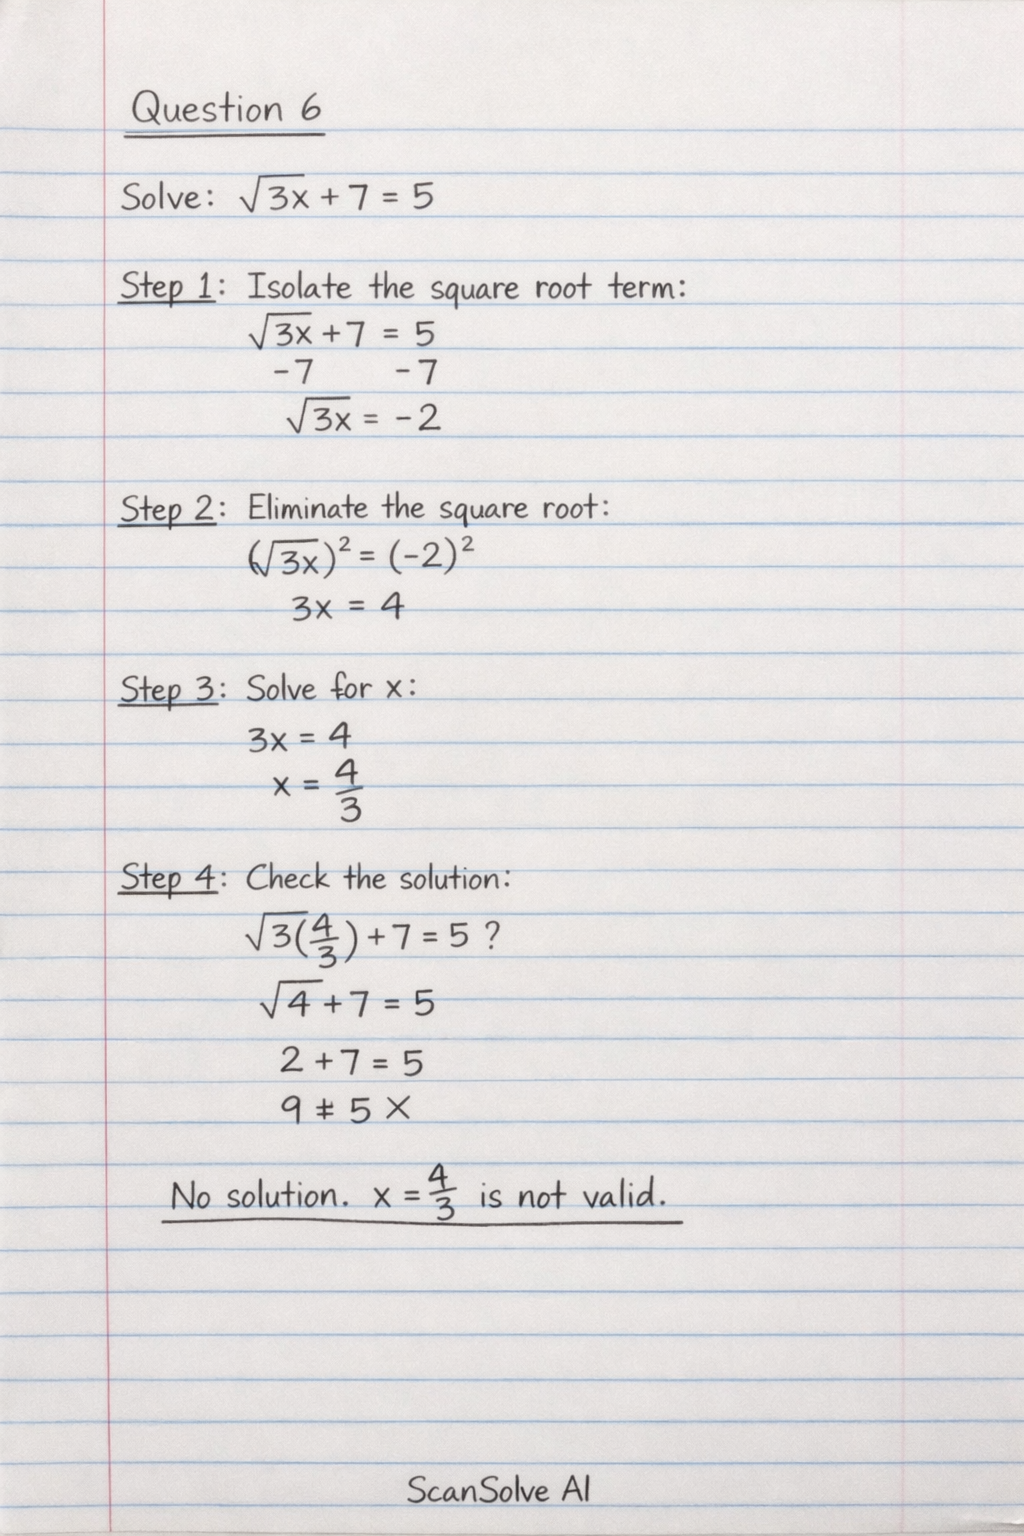 Question 6
Solve: √3x + 7 = 5
Step 1: Isolate the square root term:
√3x + 7 = 5
-7 -7
√3x = -2
Step 2: Eliminate the square root:
(√3x)² = (-2)²
3x = 4
Step 3: Solve for x:
3x = 4
x = 4/3
Step 4: Check the solution:
√3(4/3) + 7 = 5 ?
√4 + 7 = 5
2 + 7 = 5
9 ≠ 5 X
No solution. x = 4/3 is not valid.
ScanSolve AI